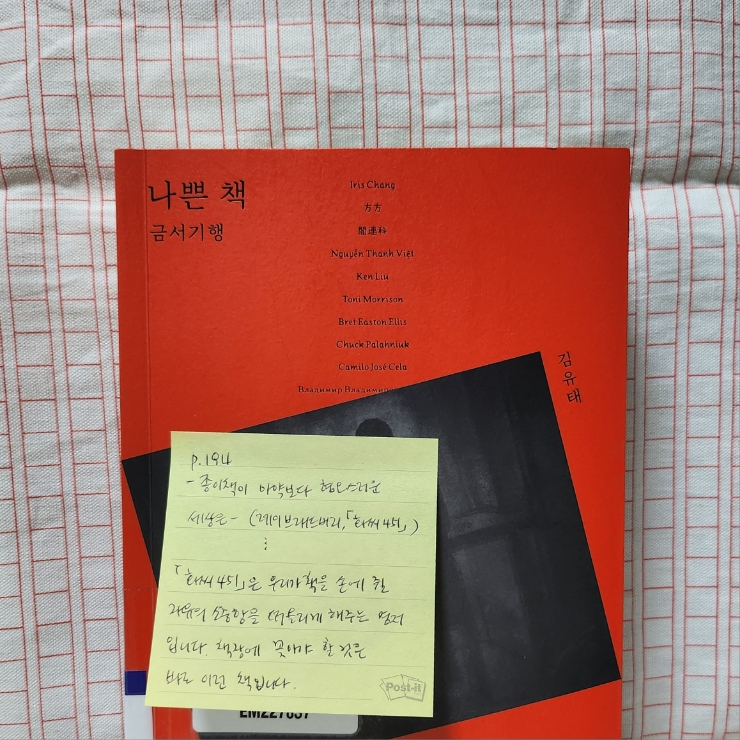 나쁜 책
금서기행
Iris Chang
方方
閻連科
Nguyễn Thanh Việt
Ken Liu
Toni Morrison
Bret Easton Ellis
Chuck Palahniuk
Camilo José Cela
Владимир
김유태
p.194
- 종이책이 마약보다 혐오스러운
세상은 - (레이 브래드버리, 「화씨 451」)
⋮
「화씨 451」은 우리가 책을 손에 쥘
자유의 소중함을 떠올리게 해주는 명저
입니다. 책장에 꽂아야 할 것은
바로 이런 책입니다.
Post-it